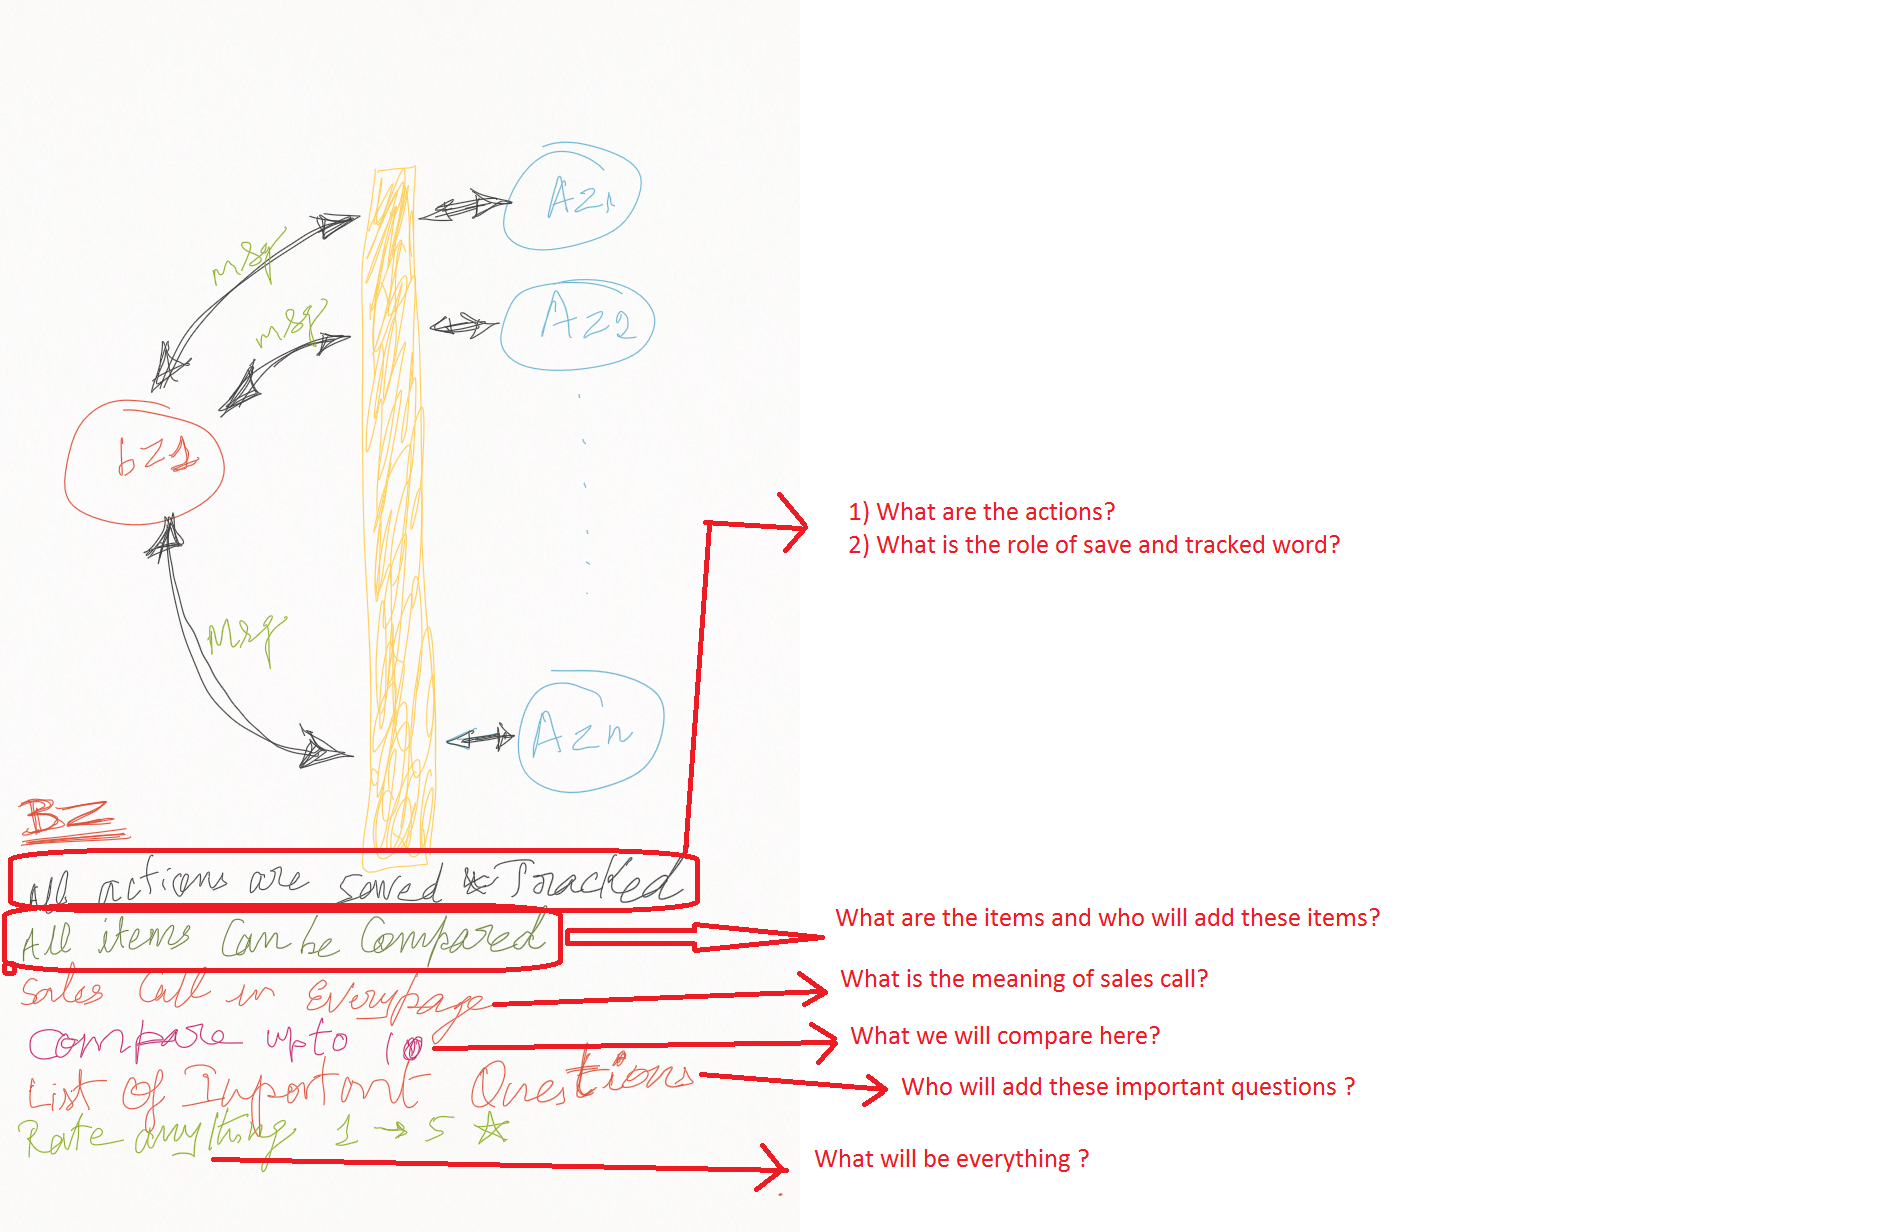 Az1
msg
msg
Az2
bz1
1) What are the actions?
2) What is the role of save and tracked word?
Msg
Azn
BZ
All actions are saved & Tracked
All items Can be Compared
What are the items and who will add these items?
Sales Call in Everypage
What is the meaning of sales call?
Compare upto 10
What we will compare here?
List Of Important Questions
Who will add these important questions ?
Rate anything 1 → 5 ☆
What will be everything ?